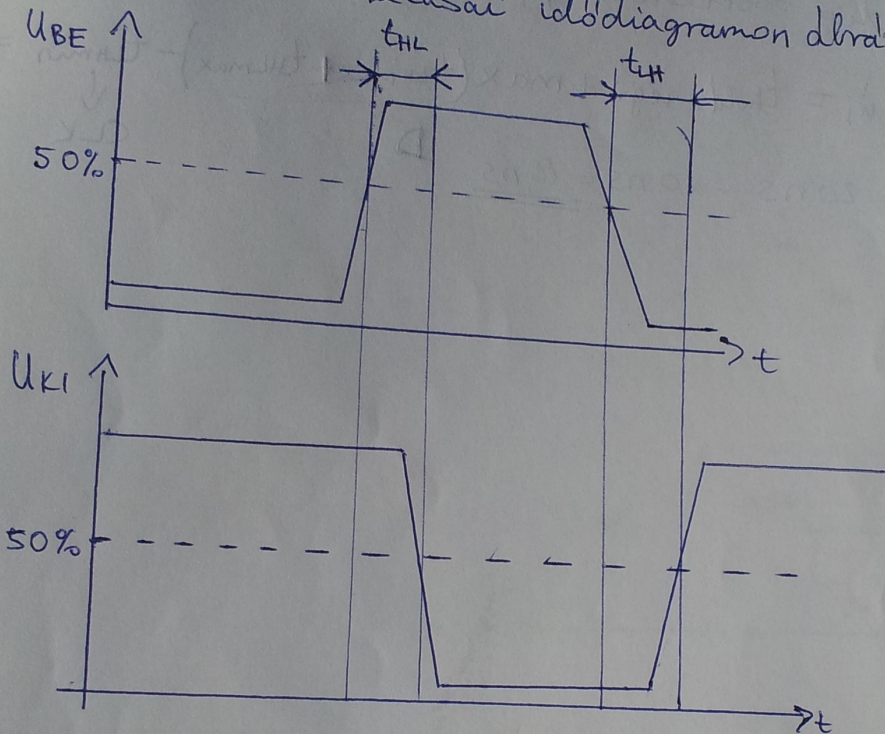 idődiagramon
U_BE
t_HL
t_LH
50%
t
U_KI
50%
t